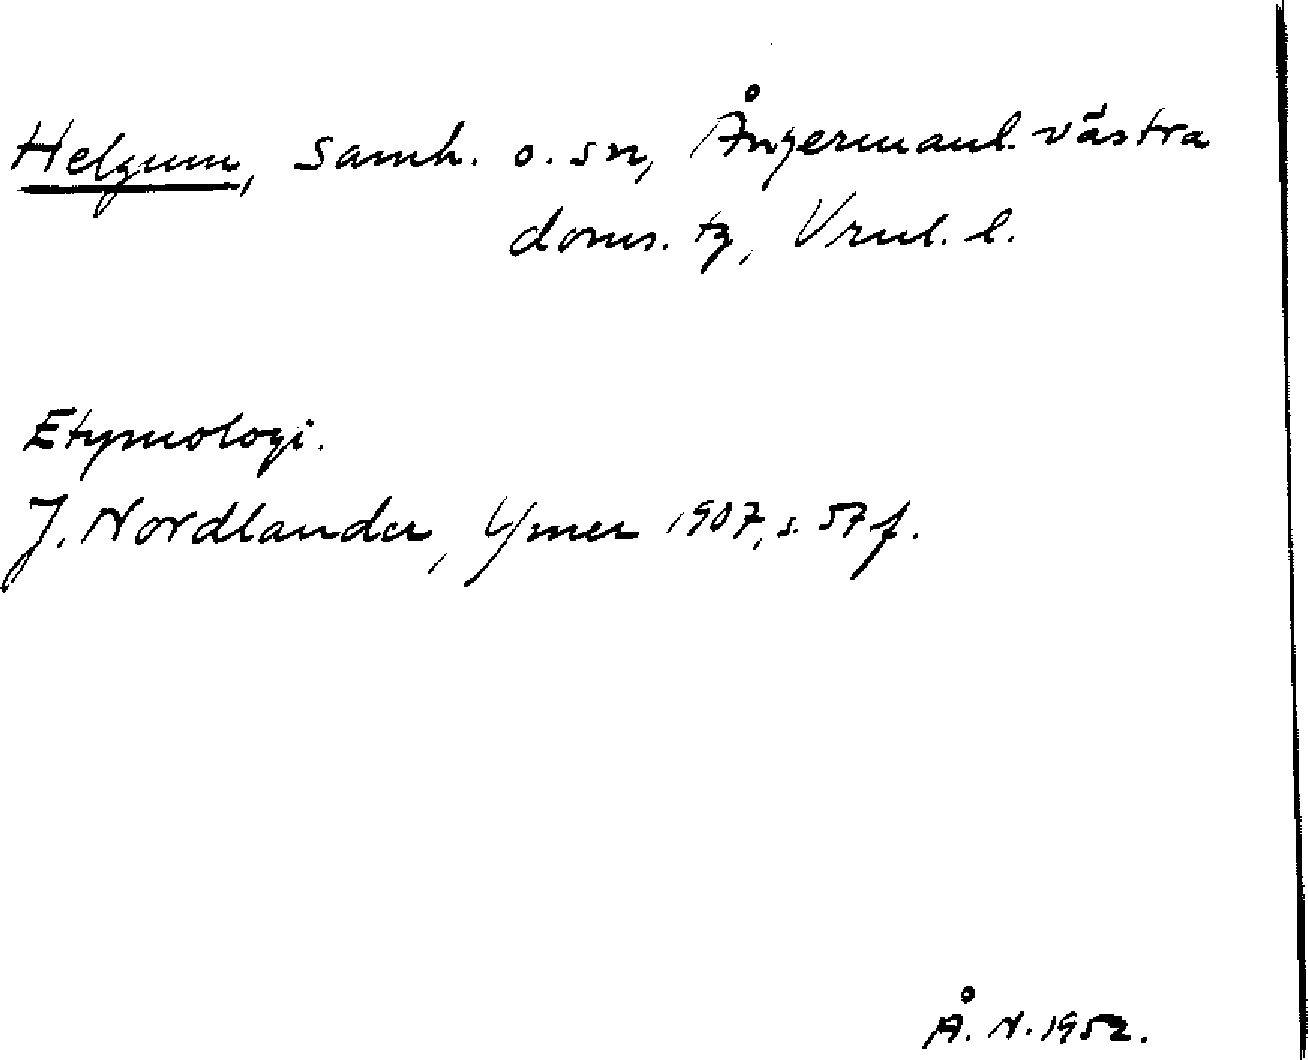 Helgum, samh. o. sn, Ångermanl. västra
doms. tg, Vrnl. l.
Etymologi.
J. Nordlander, Ymer 1907, s. 57 f.
Å. N. 1952.